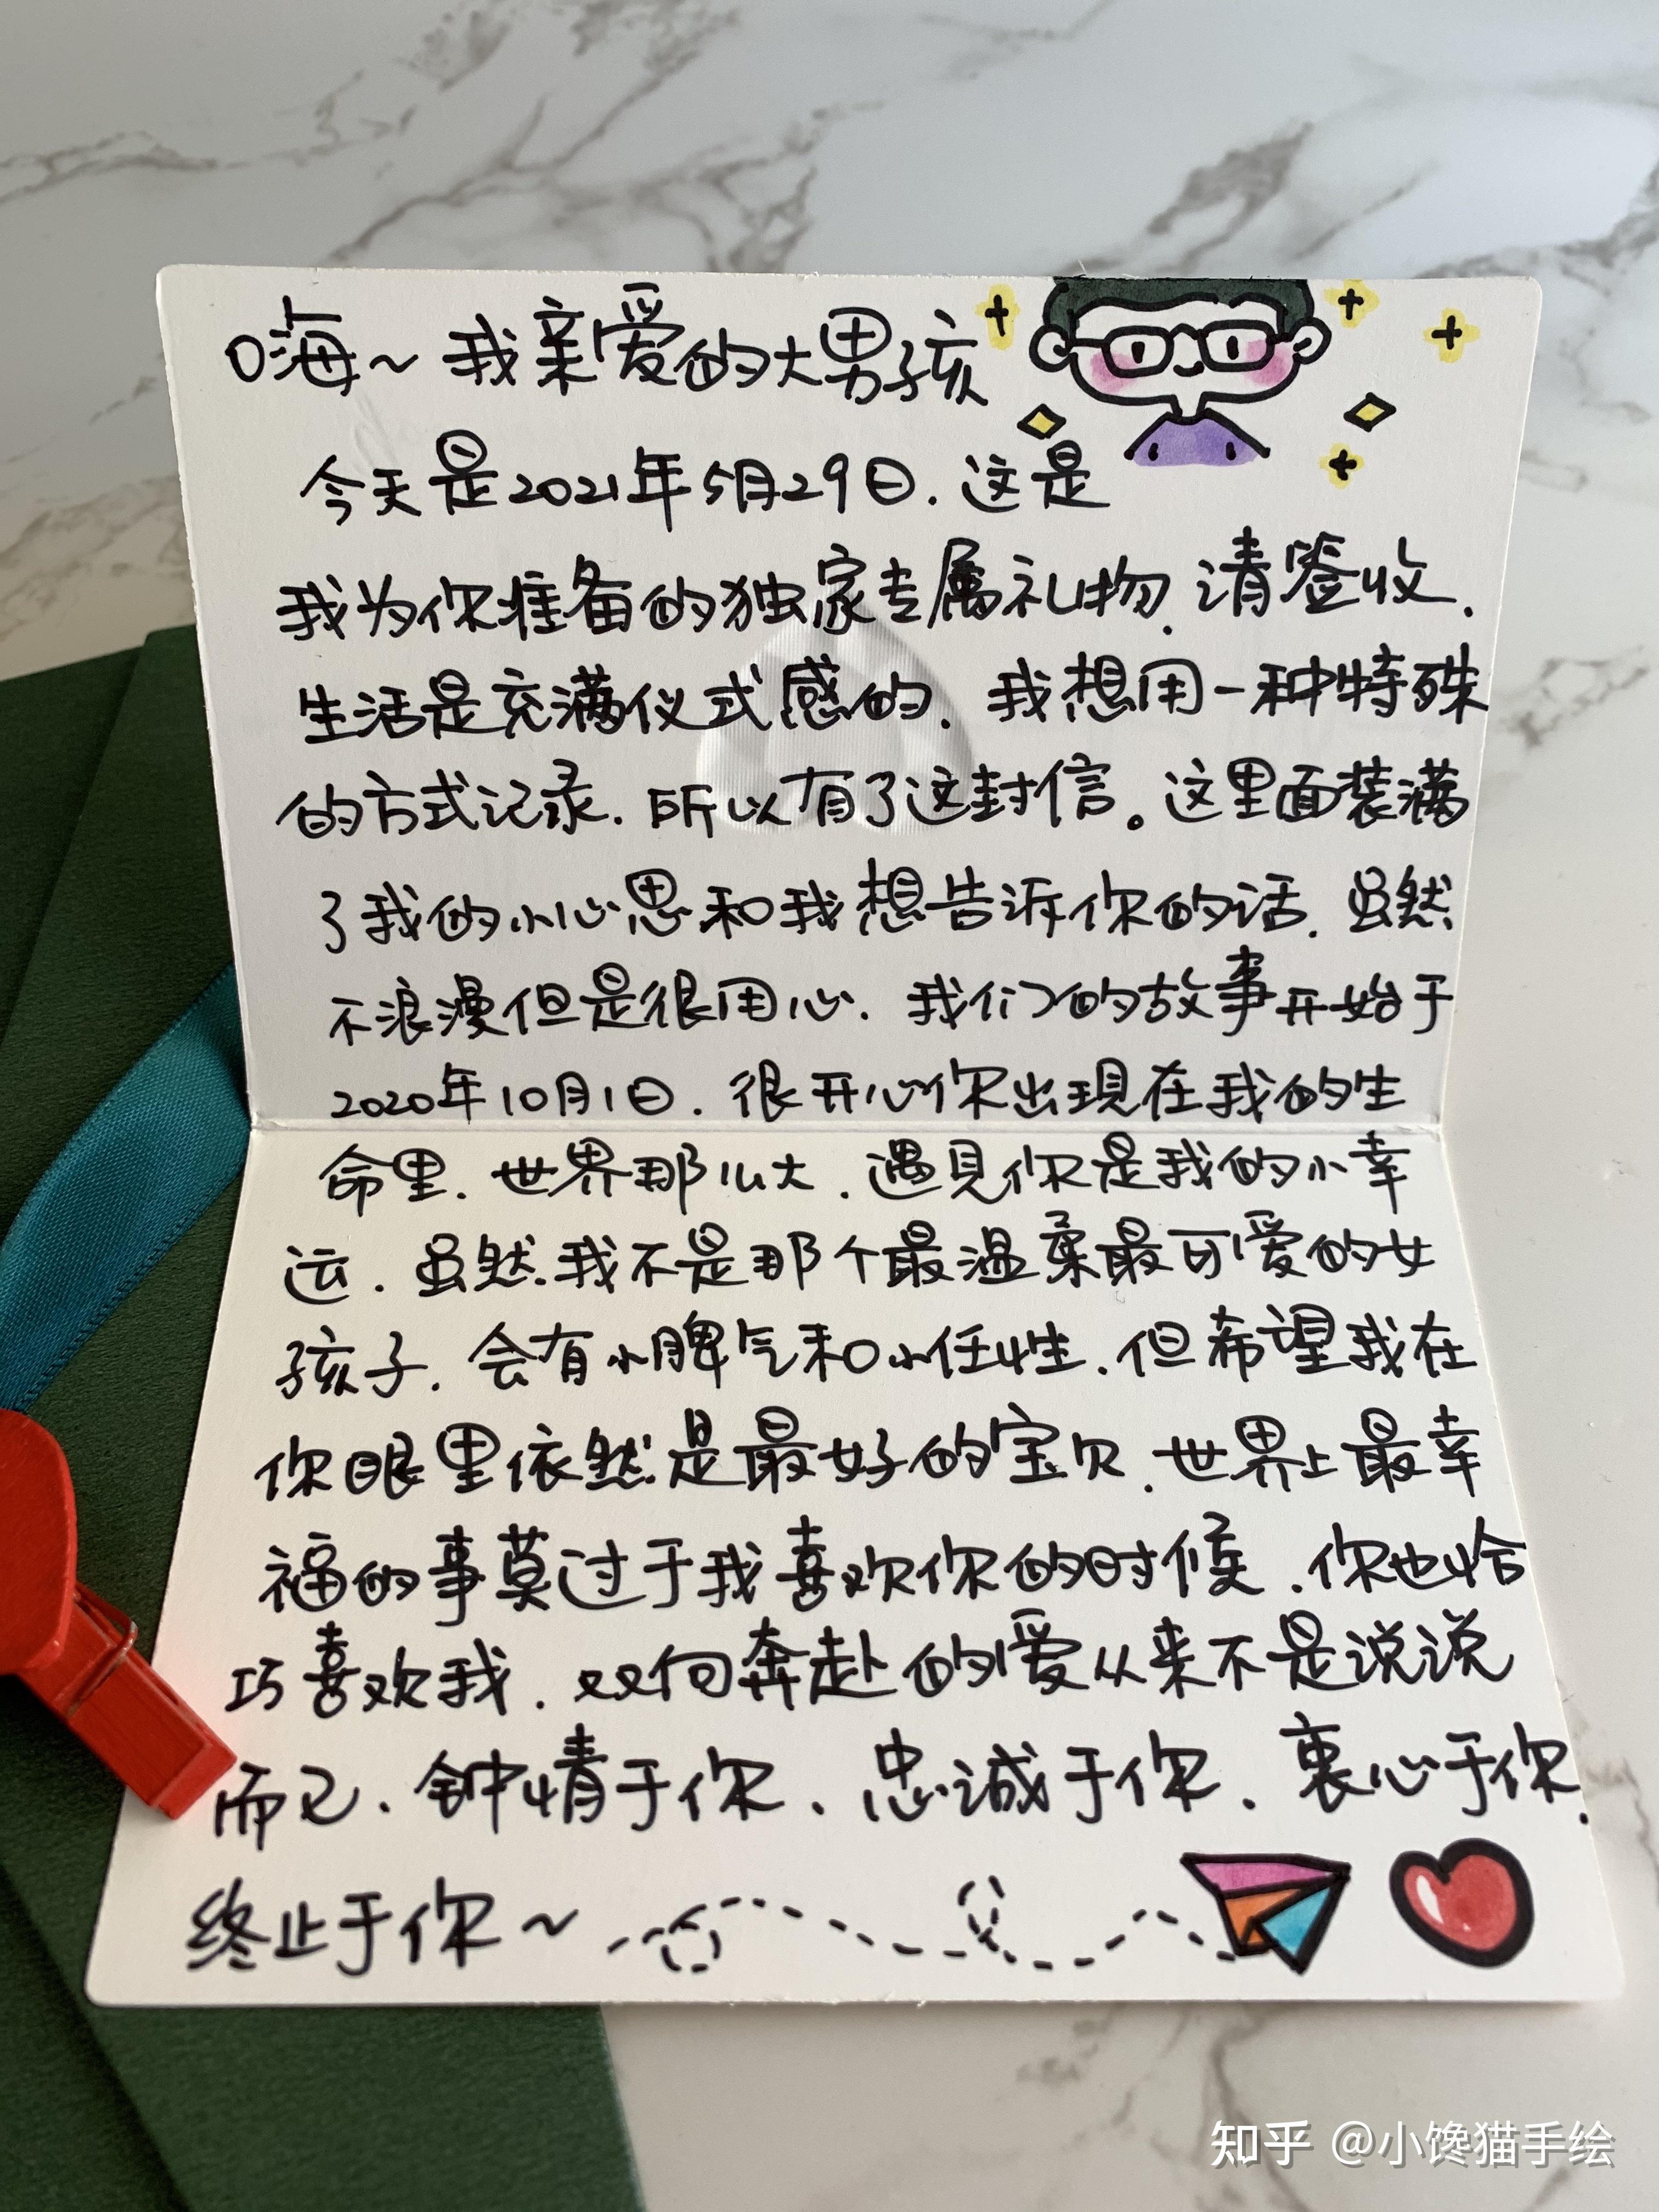 嗨~我亲爱的大男孩
今天是2021年5月29日.这是
我为你准备的独家专属礼物.请签收.
生活是充满仪式感的.我想用一种特殊
的方式记录.所以有了这封信。这里面装满
了我的小心思和我想告诉你的话.虽然
不浪漫但是很用心.我们的故事开始于
2020年10月1日.很开心你出现在我的生
命里.世界那么大.遇见你是我的小幸
运.虽然我不是那个最温柔最可爱的女
孩子.会有小脾气和小任性.但希望我在
你眼里依然是最好的宝贝.世界上最幸
福的事莫过于我喜欢你的时候.你也恰
巧喜欢我.双向奔赴的爱从来不是说说
而已.钟情于你.忠诚于你.衷心于你.
终止于你~
知乎 @小馋猫手绘